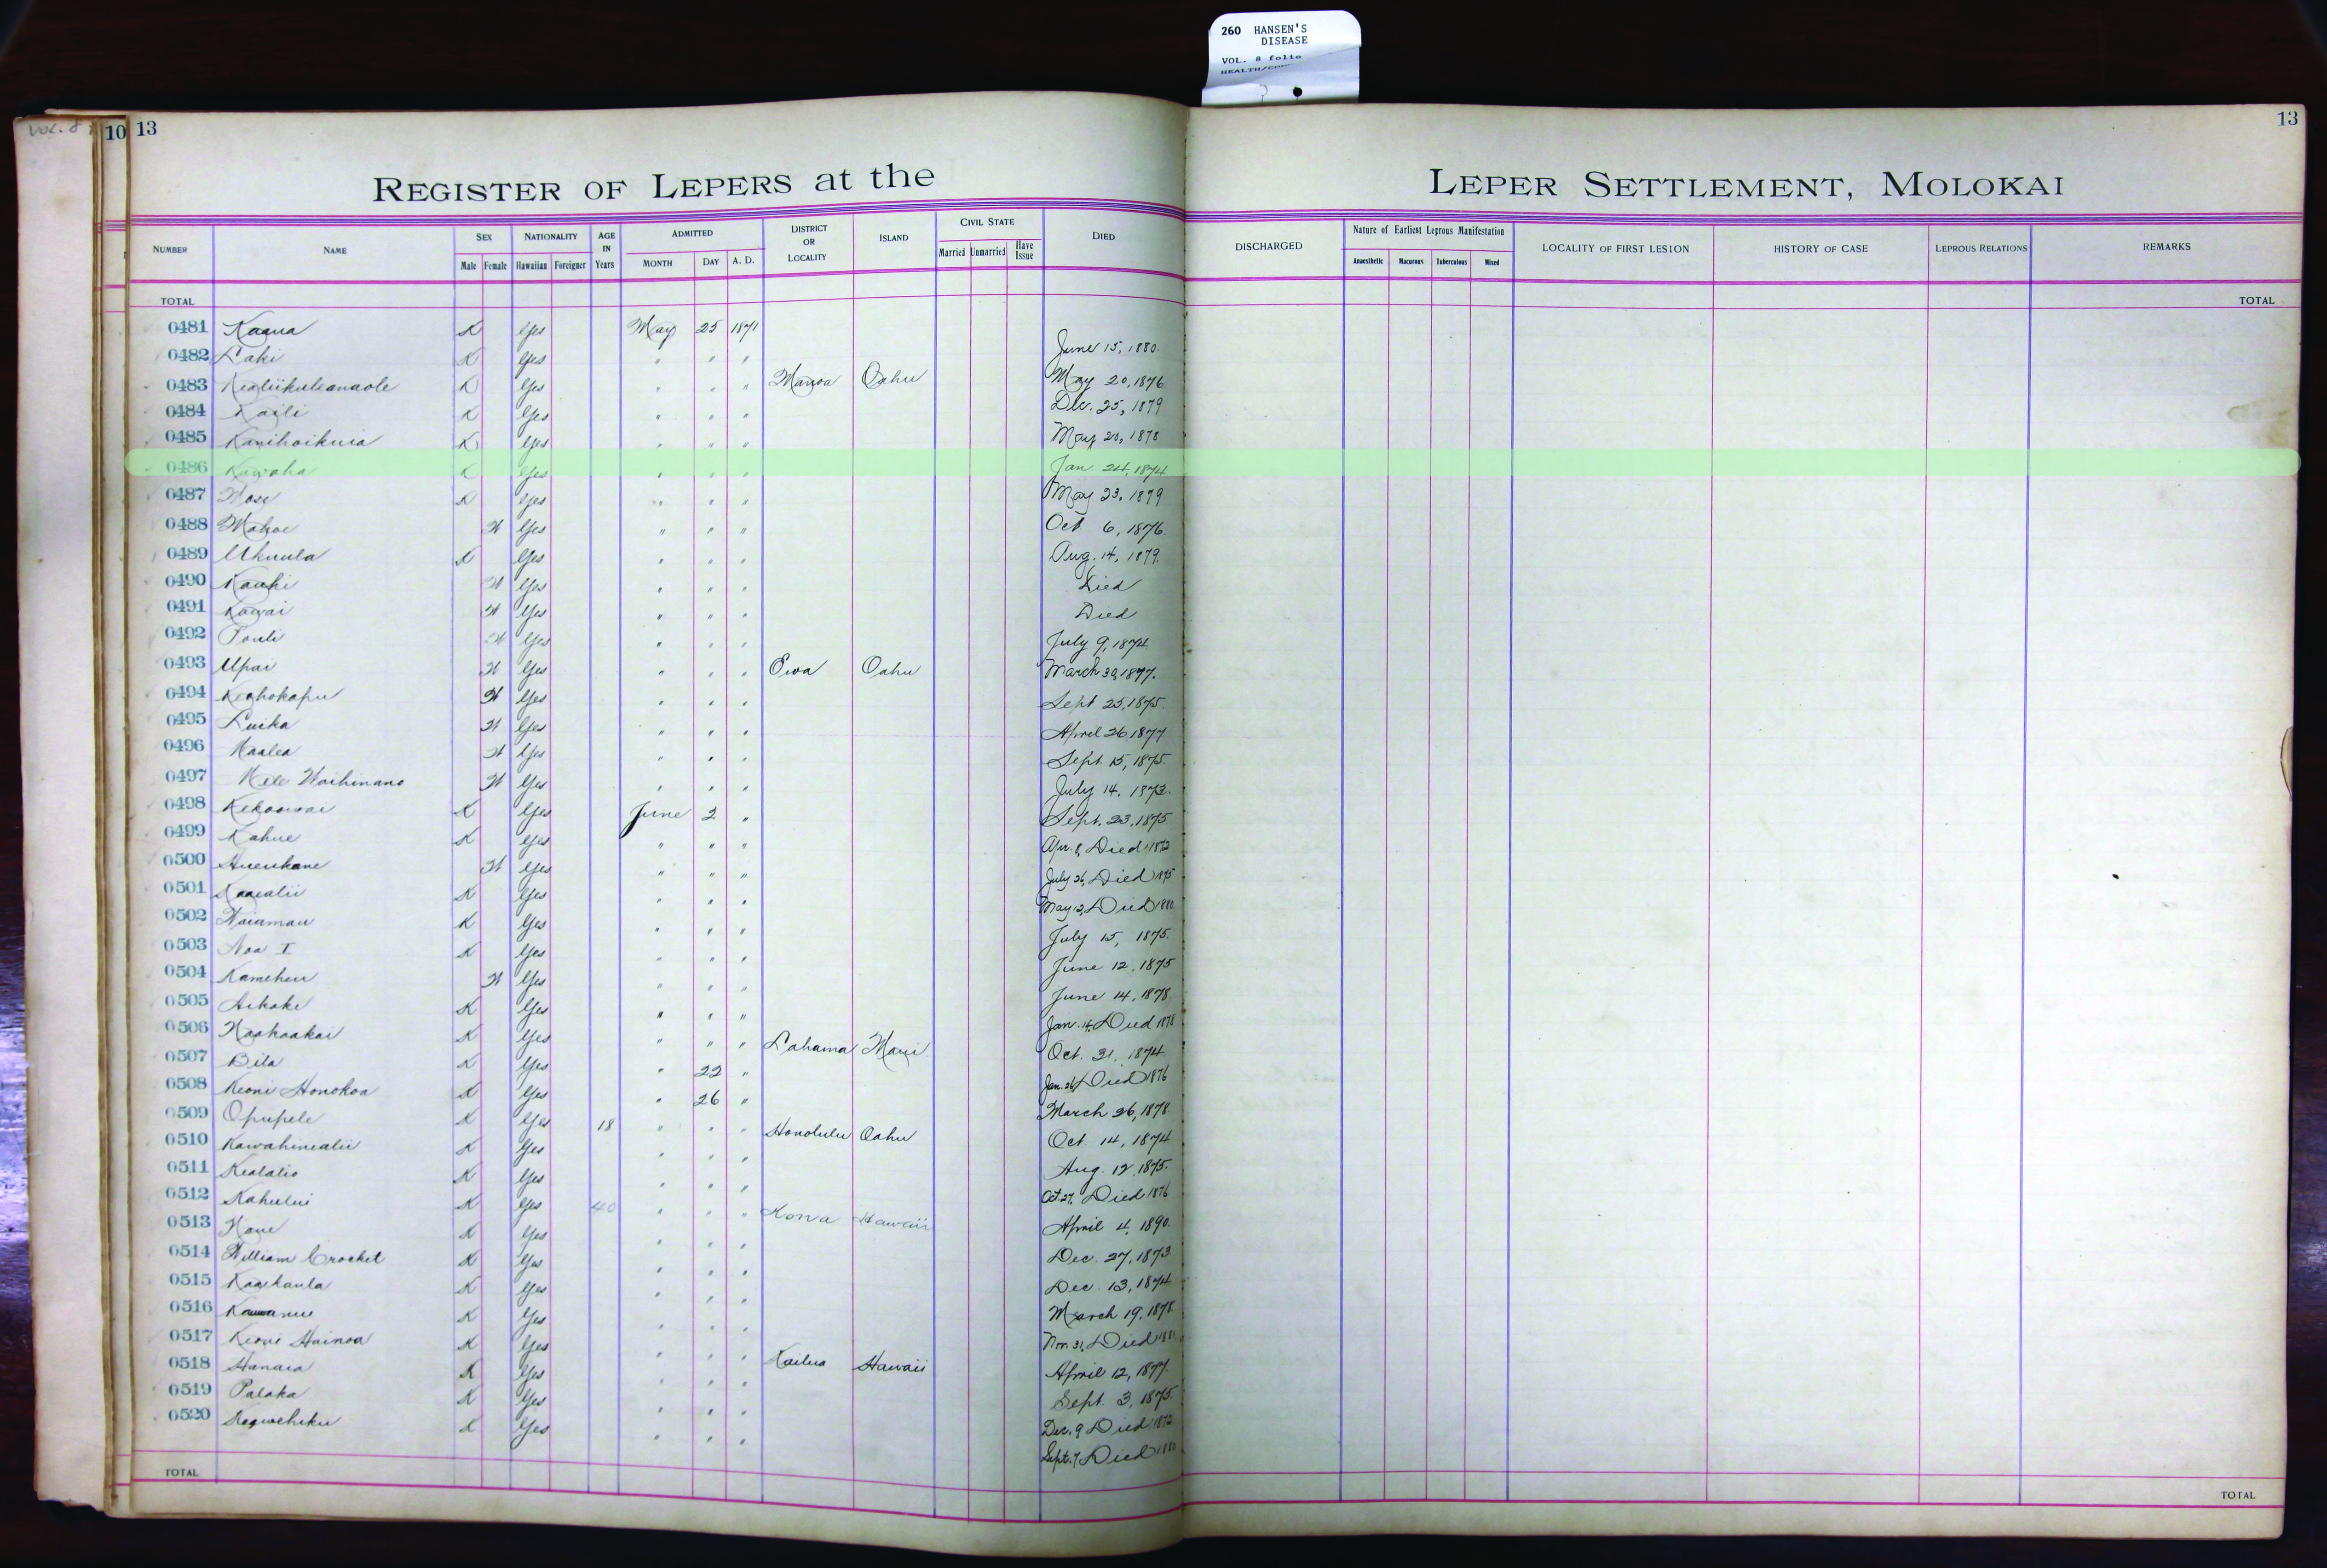 260 HANSEN'S
DISEASE
VOL. 8 folio
Vol. 8
10 13
13
REGISTER OF LEPERS at the LEPER SETTLEMENT, MOLOKAI
NUMBER NAME SEX NATIONALITY AGE IN Years ADMITTED DISTRICT OR LOCALITY ISLAND CIVIL STATE DIED DISCHARGED Nature of Earliest Leprous Manifestation LOCALITY OF FIRST LESION HISTORY OF CASE LEPROUS RELATIONS REMARKS
Male Female Hawaiian Foreigner MONTH DAY A. D. Married Unmarried Have Issue Anaesthetic Macurous Tuberculous Mixed
TOTAL TOTAL
0481 Kaaua K Yes May 25 1871
0482 Laki K Yes " " " June 15, 1880.
0483 Kealiikuleanaole K Yes " " " Manoa Oahu May 20, 1876
0484 Kaili K Yes " " " Dec. 25, 1879
0485 Kanihoikuia K Yes " " " May 20, 1878
0486 Kawaha K Yes " " " Jan. 24, 1874
0487 K Yes " " " May 23, 1879
0488 Mahoe W Yes " " " Oct 6, 1876.
0489 Ukuula K Yes " " " Aug. 14, 1879.
0490 Kauhi W Yes " " " Died
0491 Kawai W Yes " " " Died
0492 Pouli W Yes " " " July 9, 1874
0493 Upai W Yes " " " Ewa Oahu March 30, 1877.
0494 Keahokapu W Yes " " " Sept 25, 1875.
0495 Luika W Yes " " " April 26 1877
0496 Maalea W Yes " " " Sept. 15, 1875.
0497 Mele Waihinano W Yes " " " July 14, 1873.
0498 Kekoowai K Yes June 2 " Sept. 23, 1875
0499 Kahue K Yes " " " Apr. 8, Died 1872
0500 Hueukane W Yes " " " July 26, Died 1875
0501 Kaaealii K Yes " " " May 12, Died 1880
0502 Naiamau K Yes " " " July 15, 1875.
0503 Noa I K Yes " " " June 12. 1875
0504 Kameheu W Yes " " " June 14, 1878
0505 Aikake K Yes " " " Jan. 14, Died 1878
0506 Kaahaakai K Yes " " " Lahaina Maui Oct. 31, 1874
0507 Bila K Yes " 22 " Jan. 26, Died 1876
0508 Keoni Honokoa K Yes " 26 " March 26, 1878
0509 Opupele K Yes 18 " " " Honolulu Oahu Oct 14, 1874
0510 Kawahinealii K Yes " " " Aug. 12, 1875.
0511 Kealalio K Yes " " " Oct. 27, Died 1876
0512 Kahului K Yes 40 " " " Kona Hawaii April 4, 1890.
0513 Kaue K Yes " " " Dec. 27, 1873
0514 William Crocket K Yes " " " Dec. 13, 1874
0515 Kaaikaula K Yes " " " March 19, 1878
0516 K Yes " " " Nov. 31, Died 1881
0517 Keoni Hainoa K Yes " " " Kailua Hawaii April 12, 1877.
0518 Hanaia K Yes " " " Sept. 3, 1875.
0519 Palaka K Yes " " " Dec. 9 Died 1872
0520 K Yes " " " Sept. 7, Died 1880
TOTAL TOTAL